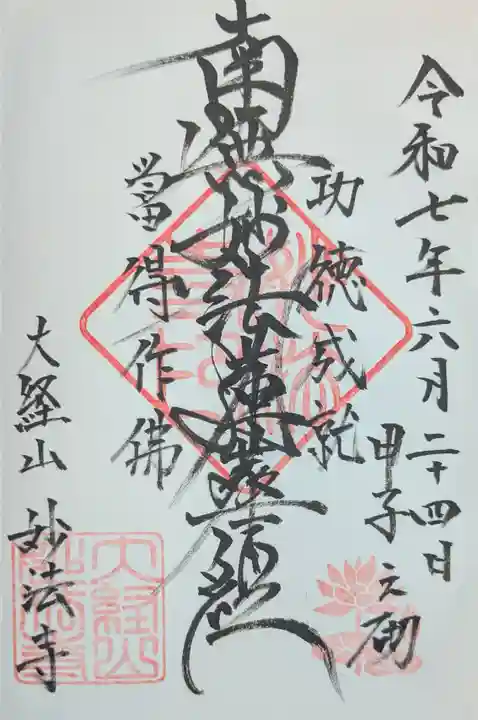 令和七年六月二十四日
甲子之砌
功徳成就
南無妙法蓮華経
當得作佛
大経山 妙法寺